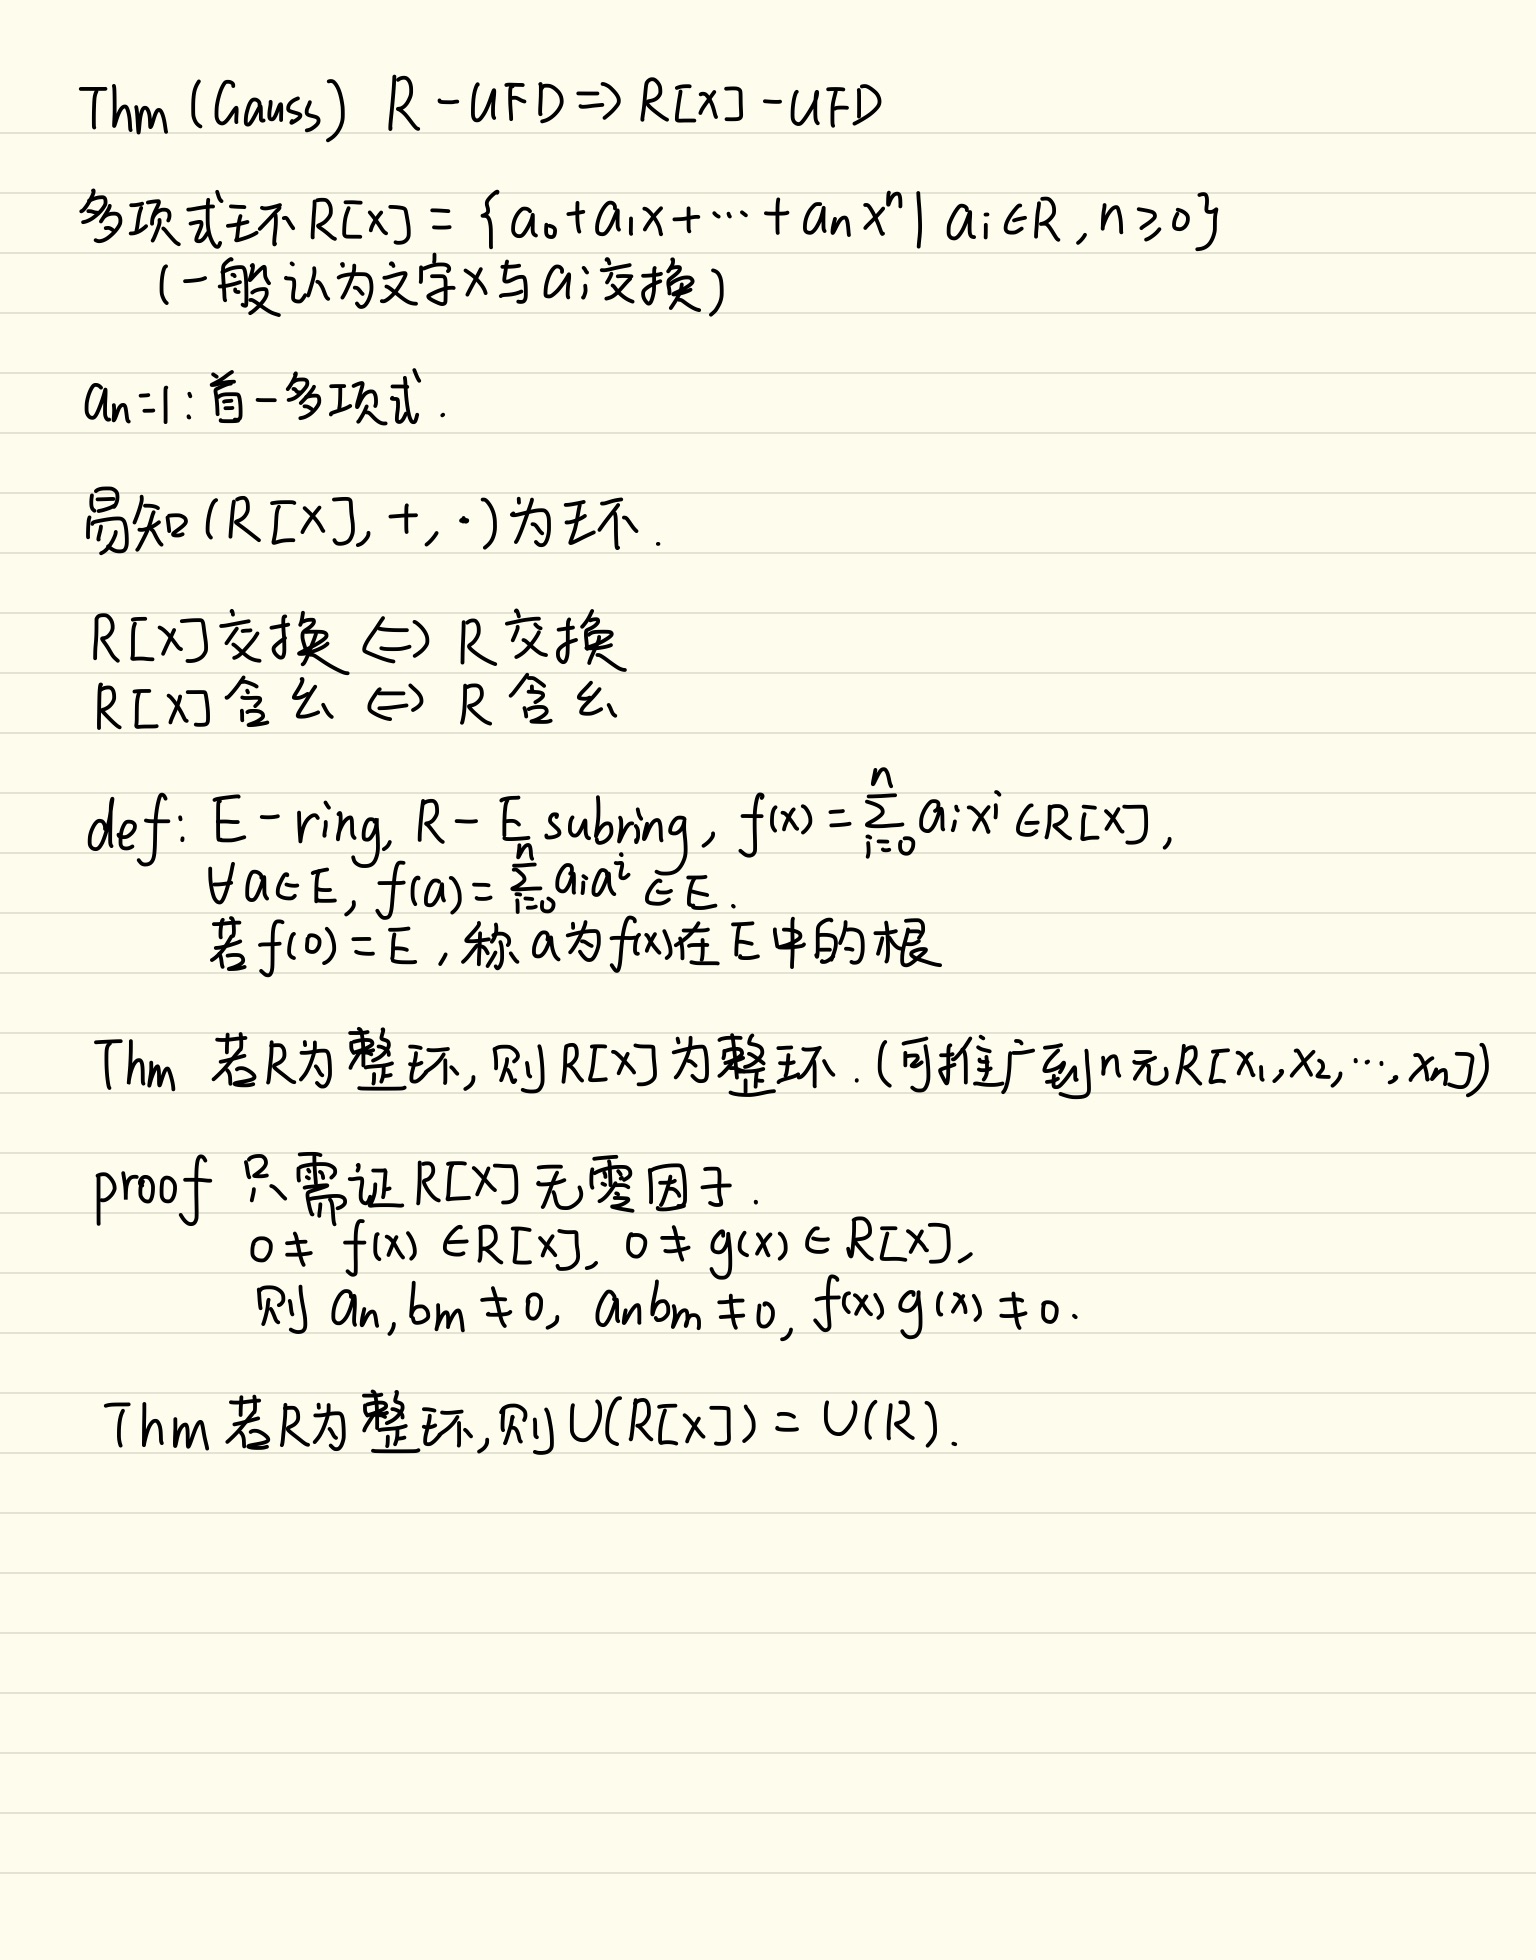 Thm (Gauss) R - UFD ⇒ R[x] - UFD
多项式环 R[x] = {a₀+a₁x+⋯+aₙxⁿ | aᵢ∈R, n≥0}
(一般认为文字x与aᵢ交换)
aₙ=1: 首一多项式.
易知(R[x], +, ·)为环.
R[x]交换 ⇔ R交换
R[x]含幺 ⇔ R含幺
def: E - ring, R - E subring, f(x) = ∑ⁿᵢ₌₀ aᵢxⁱ ∈R[x],
∀a∈E, f(a) = ∑ⁿᵢ₌₀ aᵢaⁱ ∈E.
若f(0) = E, 称a为f(x)在E中的根
Thm 若R为整环, 则R[x]为整环. (可推广到n元R[x₁, x₂, ⋯, xₙ])
proof 只需证R[x]无零因子.
0 ≠ f(x) ∈R[x], 0 ≠ g(x) ∈ R[x],
则 aₙ, bₘ ≠ 0, aₙbₘ ≠ 0, f(x)g(x) ≠ 0.
Thm 若R为整环, 则U(R[x]) = U(R).